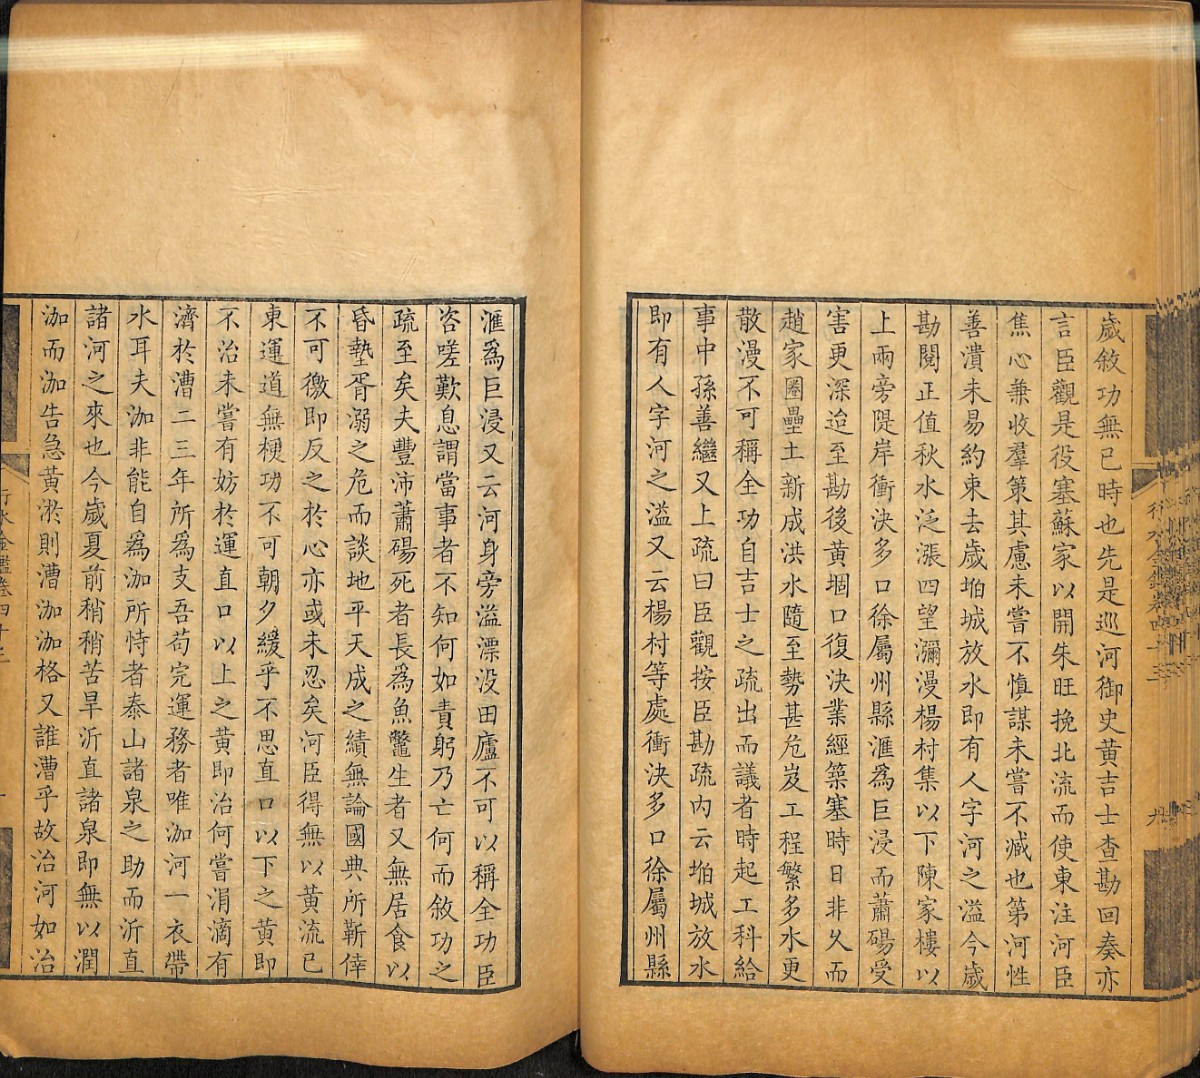 歲敘功無已時也先是巡河御史黃吉士查勘回奏亦
言臣觀是役塞蘇家以開朱旺挽北流而使東注河臣
焦心兼收羣策其慮未嘗不慎謀未嘗不臧也第河性
善潰未易約束去歲埽城放水即有人字河之溢今歲
勘閱正值秋水泛漲四望瀰漫楊村集以下陳家樓以
上兩旁隄岸衝決多口徐屬州縣滙爲巨浸而蕭碭受
害更深迨至勘後黃堌口復決業經築塞時日非久而
趙家圈壘土新成洪水隨至勢甚危岌工程繁多水更
散漫不可稱全功自吉士之疏出而議者時起工科給
事中孫善繼又上疏曰臣觀按臣勘疏內云埽城放水
即有人字河之溢又云楊村等處衝決多口徐屬州縣
滙爲巨浸又云河身旁溢漂没田廬不可以稱全功臣
咨嗟歎息謂當事者不知何如責躬乃亡何而敘功之
疏至矣夫豐沛蕭碭死者長爲魚鼈生者又無居食以
昏墊胥溺之危而談地平天成之績無論國典所靳倖
不可徼即反之於心亦或未忍矣河臣得無以黃流已
東運道無梗功不可朝夕緩乎不思直口以下之黃即
不治未嘗有妨於運直口以上之黃即治何嘗涓滴有
濟於漕二三年所爲支吾苟完運務者唯泇河一衣帶
水耳夫泇非能自爲泇所恃者泰山諸泉之助而沂直
諸河之來也今歲夏前稍稍苦旱沂直諸泉即無以潤
泇而泇告急黃淤則漕泇泇格又誰漕乎故治河如治
行水金鑑卷四十二